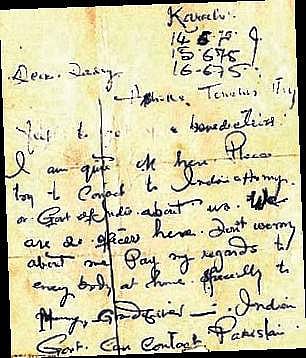 Karachi.
14.6.75
15.6.75
16.6.75.
Dear Daddy,
to benediction.
I am quite ok here. Please
try to Contact to Indian Army
or Govt of India about us. We
are 20 officers here. Don't worry
about me. Pay my regards to
every body at home. specially to
Mummy, Grandfather — Indian
Govt. Can Contact. Pakistan